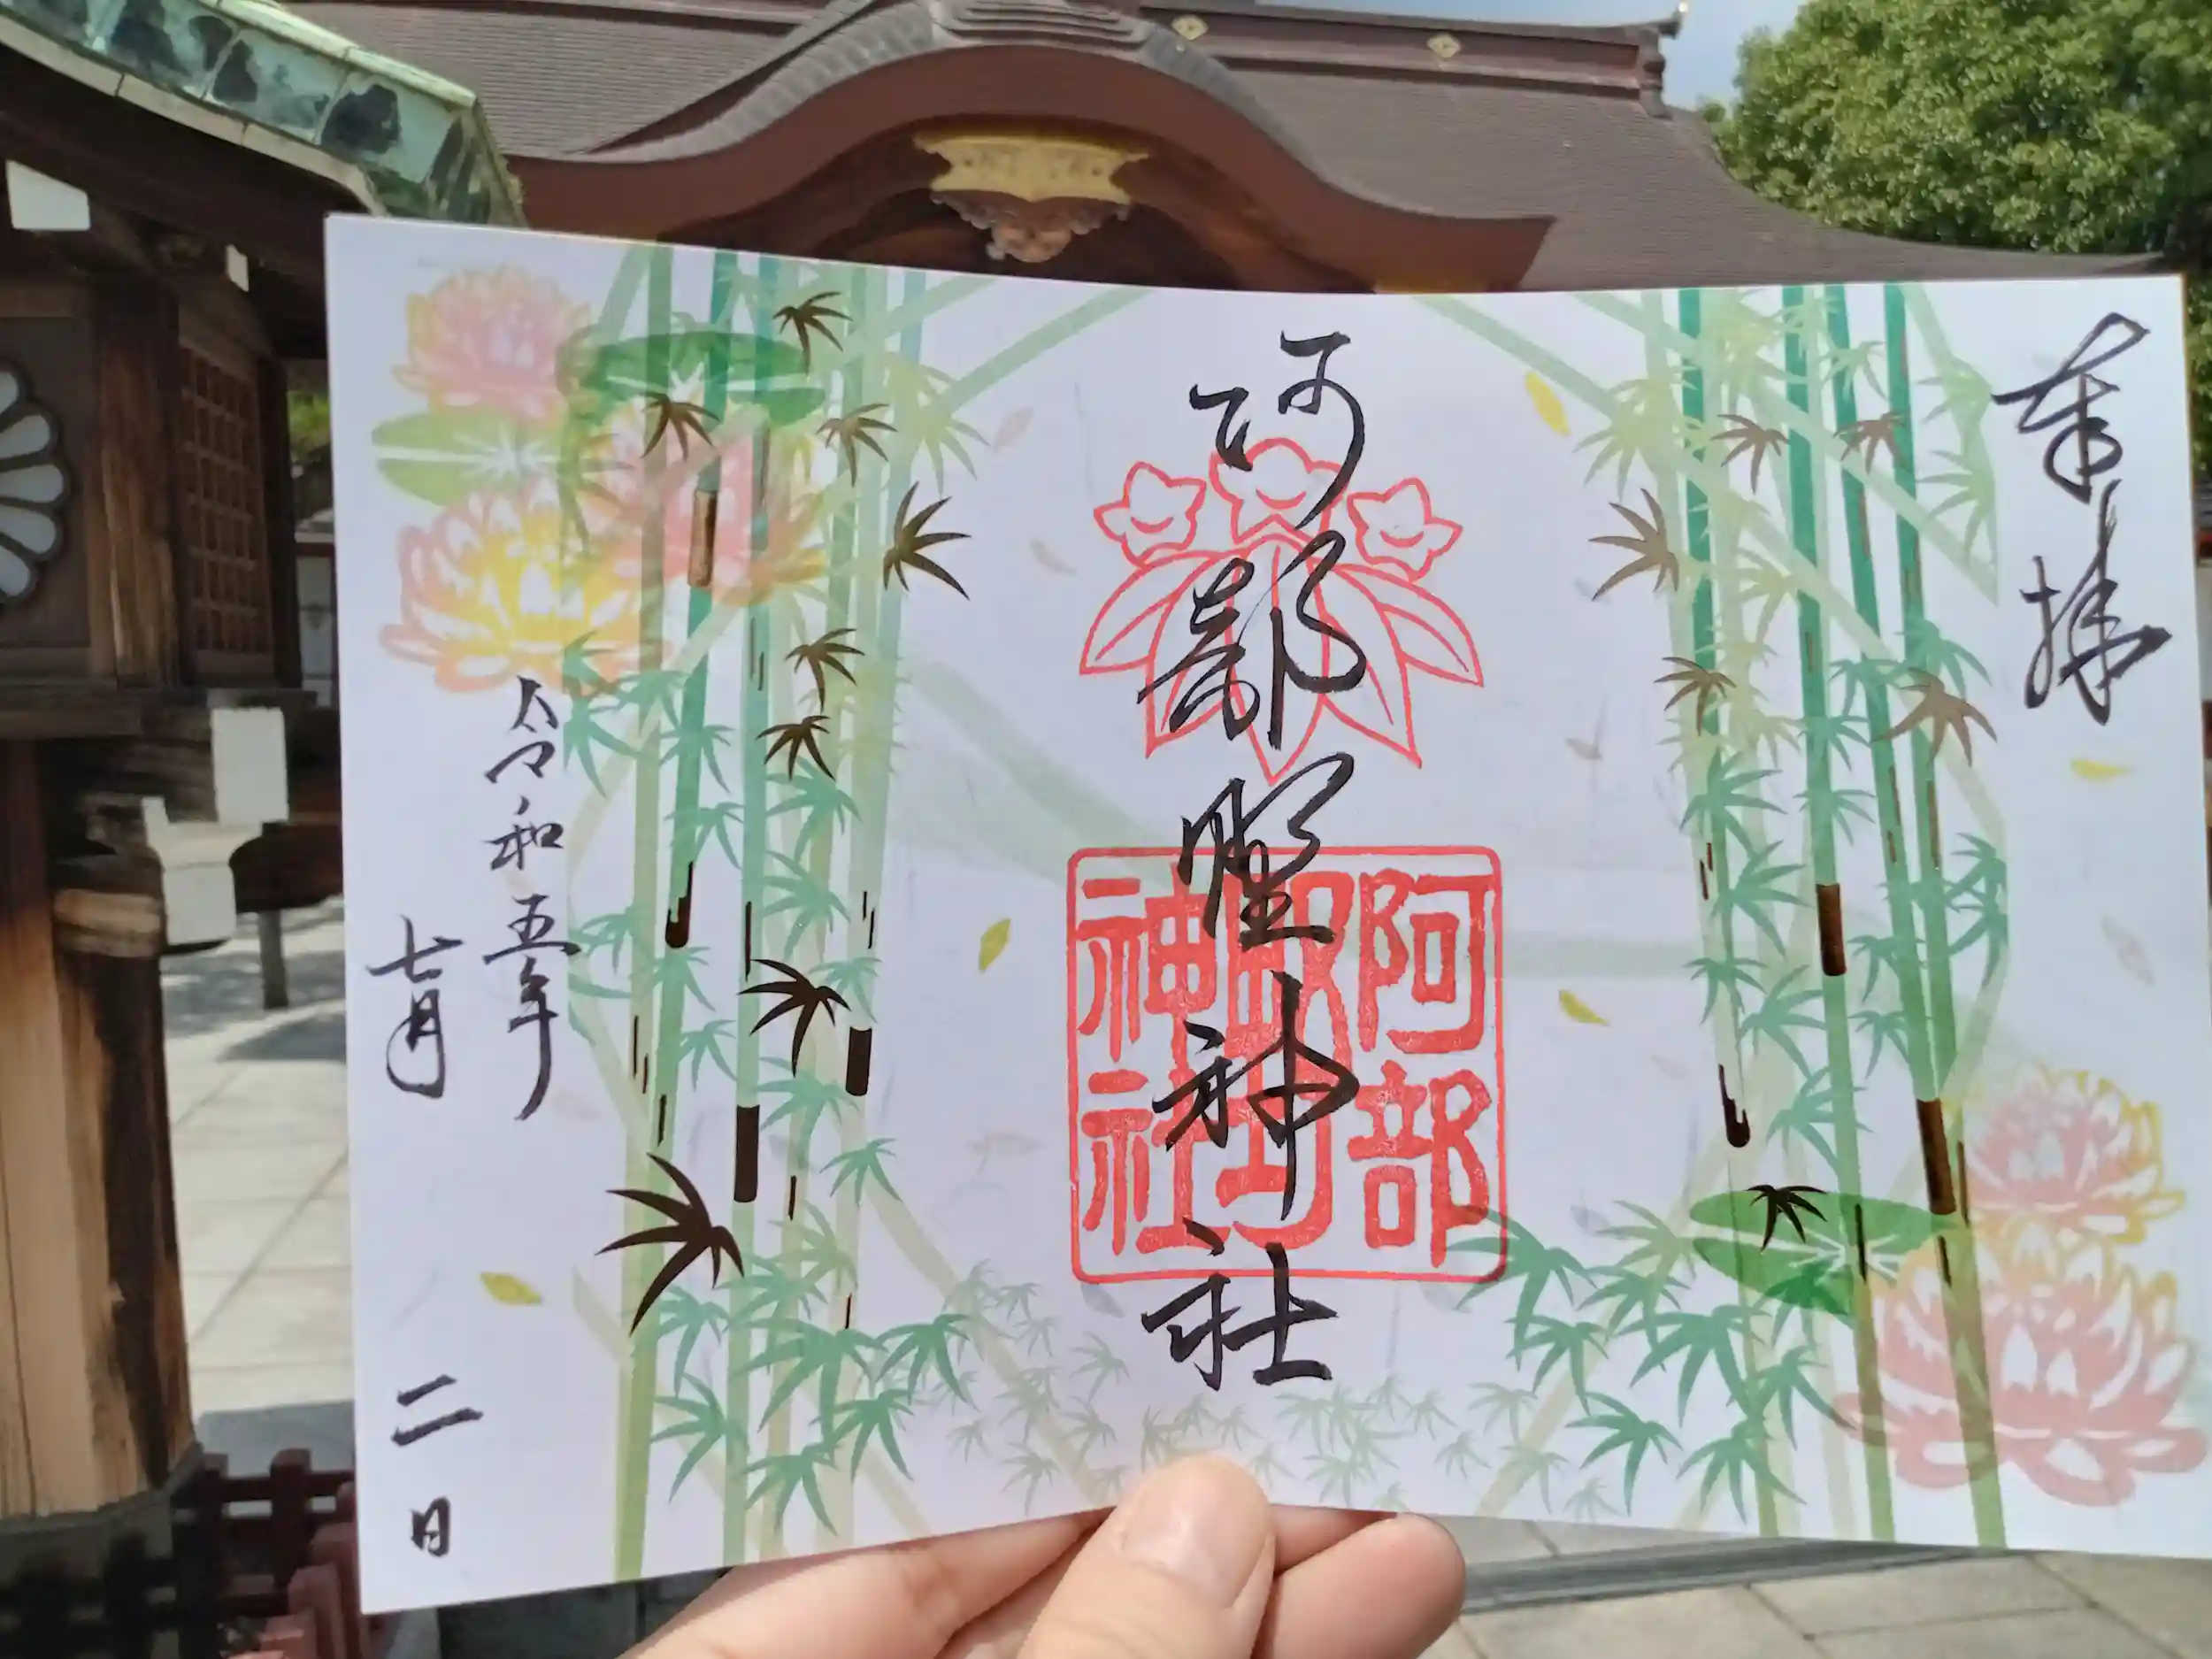 奉拝
阿部野神社
阿部
野
神社
令和五年
七月二日